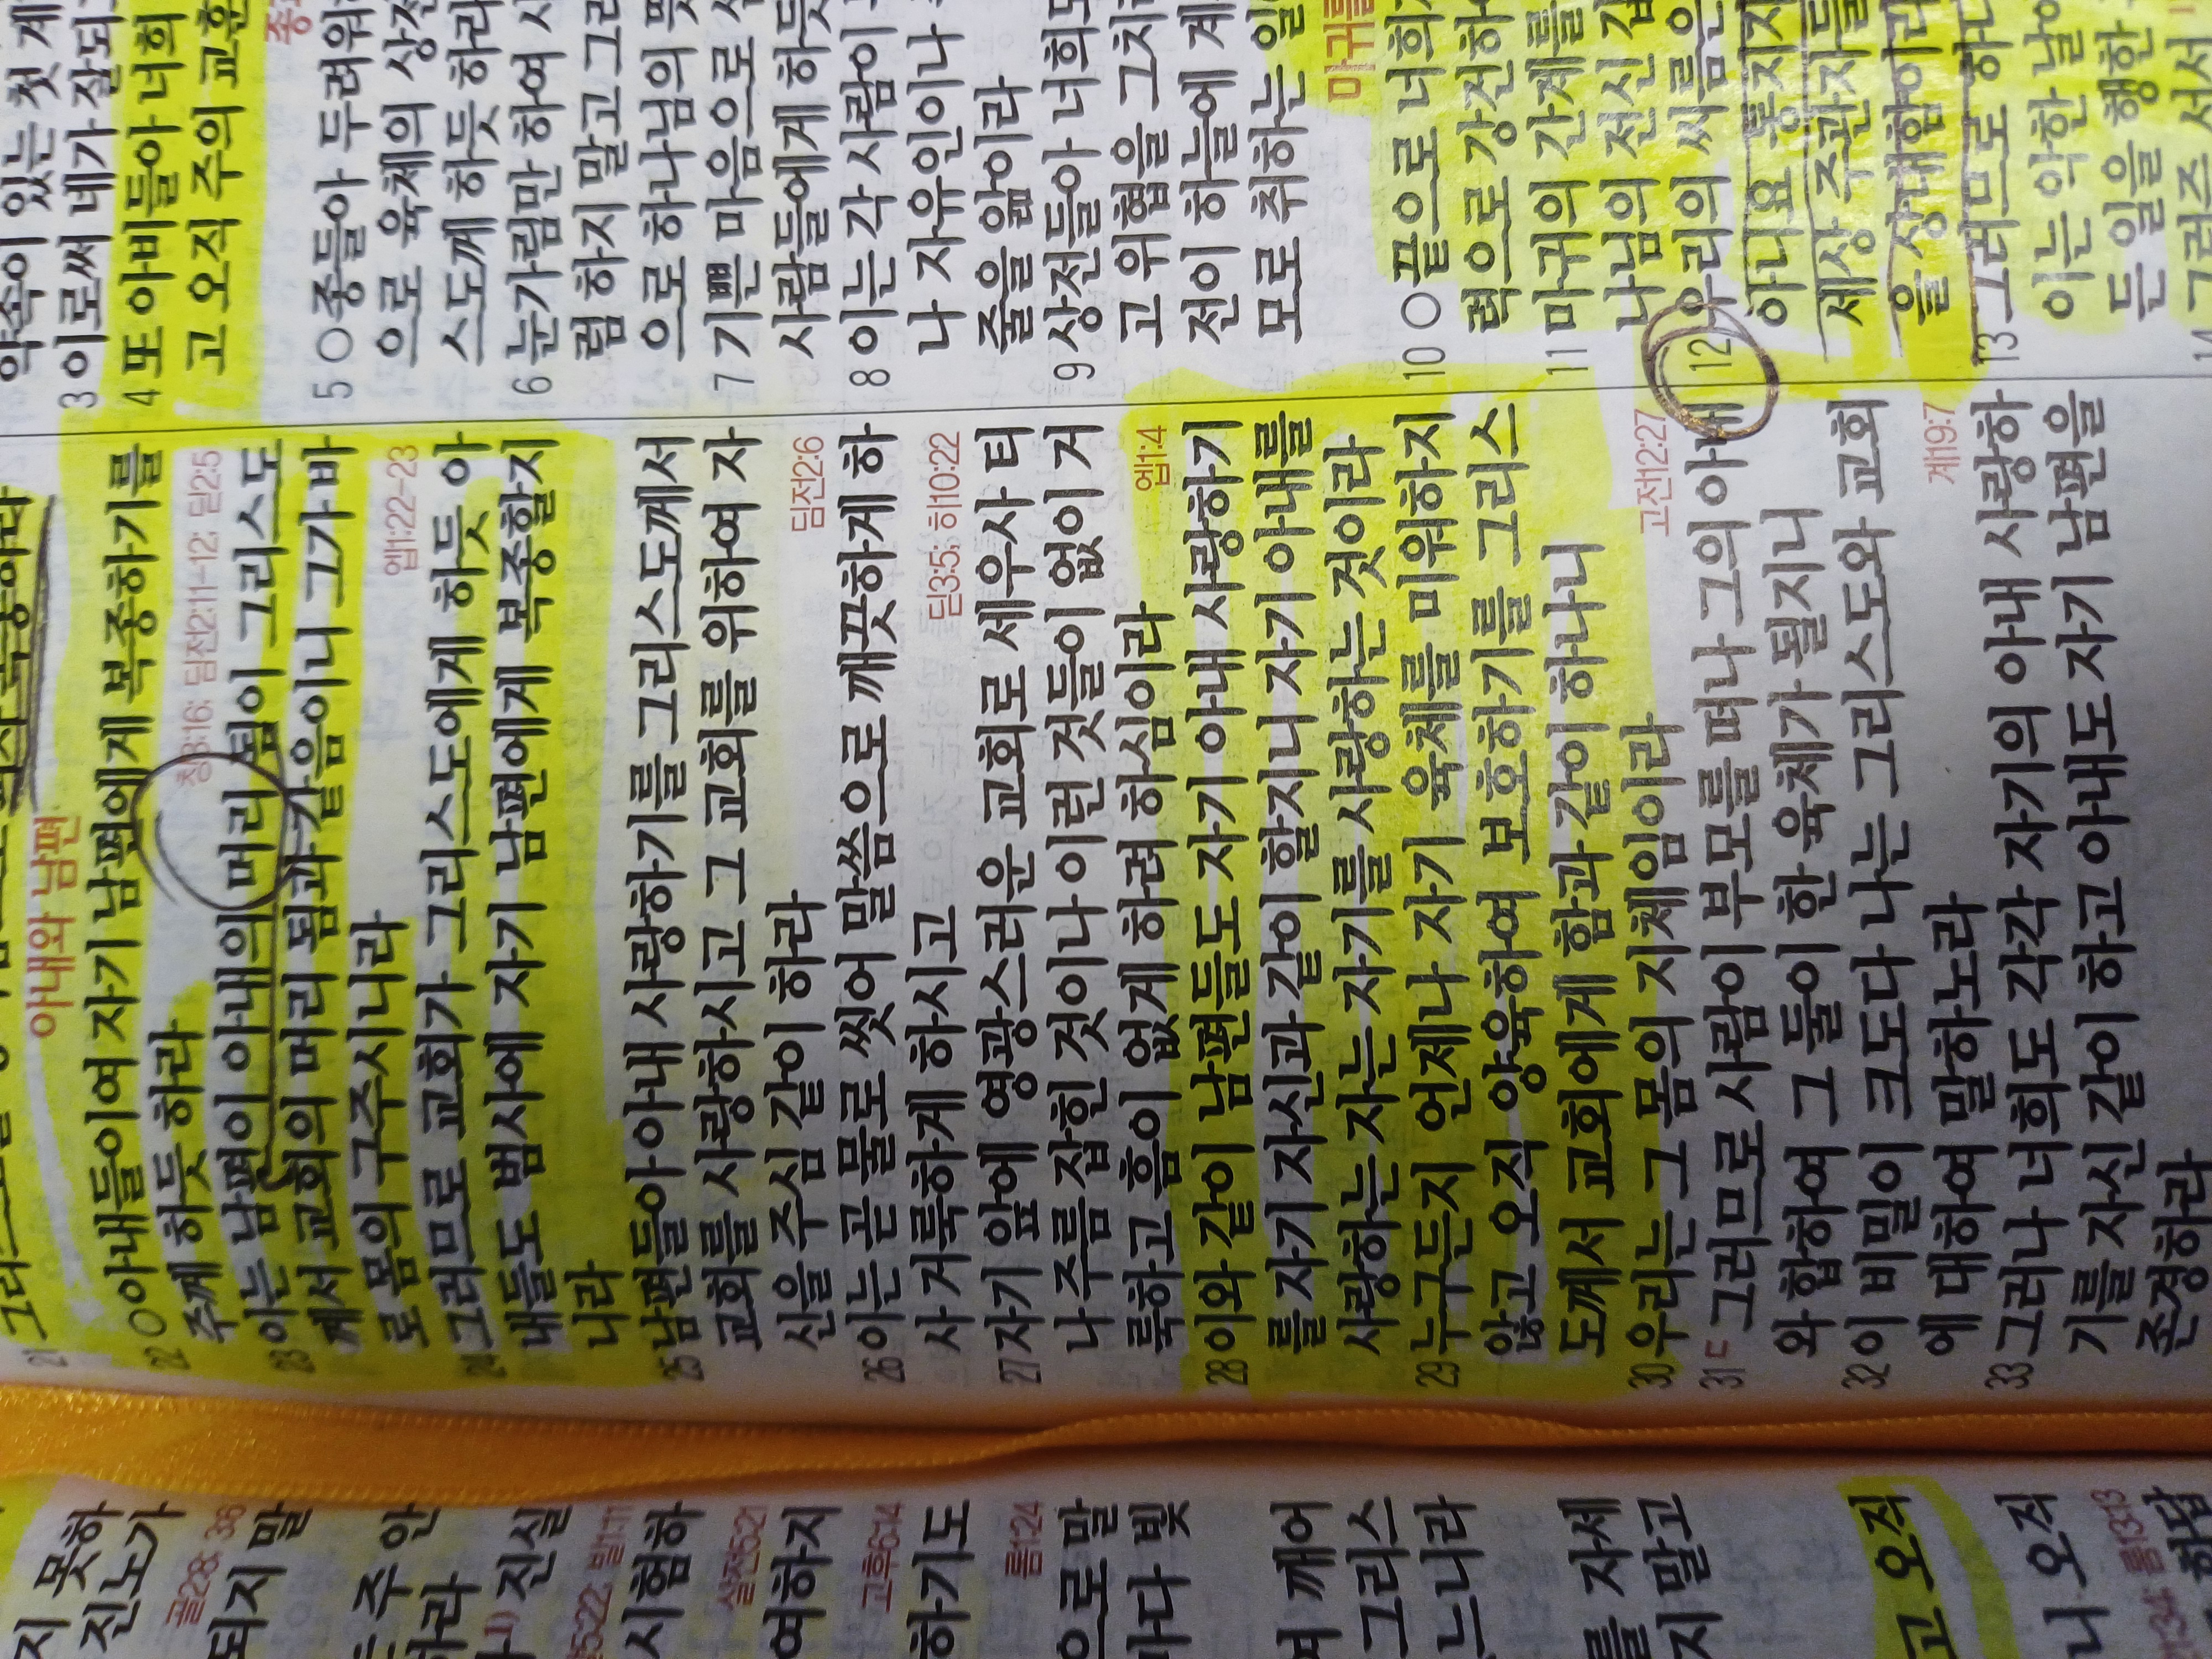 지 못하
진노가
골2:8; 3:6
되지 말
주 안
하라
진실
시험하
살전5:21
여하지
고후6:14
하기도
롬1:24
으로 말
다 빛
여 깨어
그리스
느니라
를 자세
지 말고
고 오직
니 오직
아내와 남편
22 ○아내들이여 자기 남편에게 복종하기를
주께 하듯 하라
창3:16; 딤전2:11-12; 딛2:5
23 이는 남편이 아내의 머리 됨이 그리스도
께서 교회의 머리 됨과 같음이니 그가 바
로 몸의 구주시니라
엡1:22-23
24 그러므로 교회가 그리스도에게 하듯 아
내들도 범사에 자기 남편에게 복종할지
니라
25 남편들아 아내 사랑하기를 그리스도께서
교회를 사랑하시고 그 교회를 위하여 자
신을 주심 같이 하라
딤전2:6
26 이는 곧 물로 씻어 말씀으로 깨끗하게 하
사 거룩하게 하시고
딛3:5; 히10:22
27 자기 앞에 영광스러운 교회로 세우사 티
나 주름 잡힌 것이나 이런 것들이 없이 거
룩하고 흠이 없게 하려 하심이라
엡1:4
28 이와 같이 남편들도 자기 아내 사랑하기
를 자기 자신과 같이 할지니 자기 아내를
사랑하는 자는 자기를 사랑하는 것이라
29 누구든지 언제나 자기 육체를 미워하지
않고 오직 양육하여 보호하기를 그리스
도께서 교회에게 함과 같이 하나니
30 우리는 그 몸의 지체임이라
고전12:27
31 ㄷ그러므로 사람이 부모를 떠나 그의 아내
와 합하여 그 둘이 한 육체가 될지니
32 이 비밀이 크도다 나는 그리스도와 교회
에 대하여 말하노라
계19:7
33 그러나 너희도 각각 자기의 아내 사랑하
기를 자신 같이 하고 아내도 자기 남편을
존경하라
약속이 있는 첫 계
3 이로써 네가 잘되
4 또 아비들아 너희
고 오직 주의 교훈
5 ○종들아 두려워
으로 육체의 상전
스도께 하듯 하라
6 눈가림만 하여 사
럼 하지 말고 그리
으로 하나님의 뜻
7 기쁜 마음으로 섬
사람들에게 하듯
8 이는 각 사람이
나 자유인이나
줄을 앎이라
9 상전들아 너희도
고 위협을 그치
전이 하늘에 계
모로 취하는 일
마귀를
10 ○끝으로 너희
력으로 강건하
11 마귀의 간계를
나님의 전신 갑
12 우리의 씨름은
아니요 통치자
세상 주관자들
을 상대함이라
13 그러므로 하나
이는 악한 날에
든 일을 행한
14 그런즉 서서